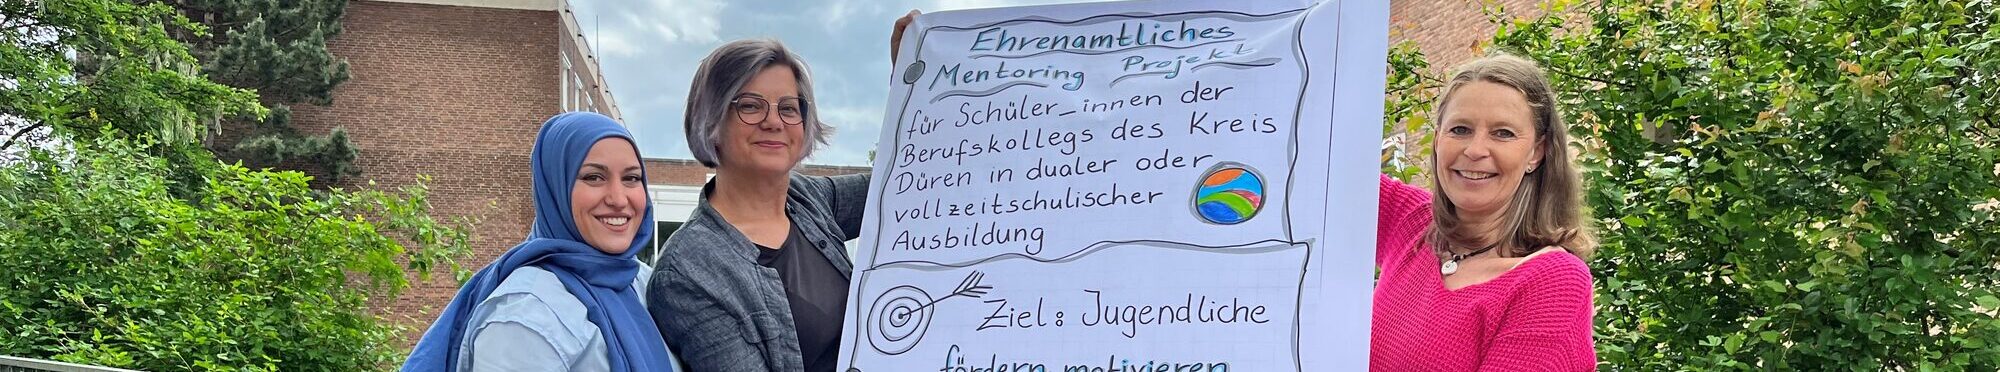 Ehrenamtliches
Mentoring Projekt
für Schüler_innen der
Berufskollegs des Kreis
Düren in dualer oder
vollzeitschulischer
Ausbildung
Ziel: Jugendliche
fördern motivieren